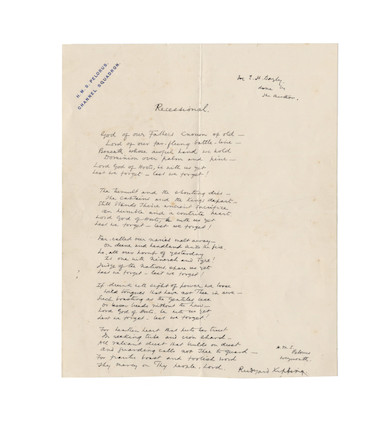 H.M.S. PELORUS,
CHANNEL SQUADRON.
for E. H. Bayly
from
the Author.
Recessional.
God of our Fathers known of old —
Lord of our far-flung battle-line —
Beneath whose awful hand we hold
Dominion over palm and pine —
Lord God of Hosts, be with us yet
Lest we forget — lest we forget!
The tumult and the shouting dies —
The Captains and the Kings depart —
Still stands Thine ancient sacrifice,
An humble and a contrite heart
Lord God of Hosts, be with us yet
Lest we forget — lest we forget!
Far-called our navies melt away —
On dune and headland sinks the fire.
Lo, all our pomp of yesterday
Is one with Nineveh and Tyre!
Judge of the Nations spare us yet
Lest we forget — lest we forget!
If drunk with sight of power, we loose
Wild tongues that have not Thee in awe —
Such boasting as the Gentiles use
Or lesser breeds without the Law —
Lord God of Hosts, be with us yet
Lest we forget — lest we forget!
For heathen heart that puts her trust
In reeking tube and iron shard —
All valiant dust that builds on dust
And guarding calls not Thee to guard —
For frantic boast and foolish word
Thy mercy on Thy people, Lord
H.M.S.
Pelorus
Rudyard Kipling